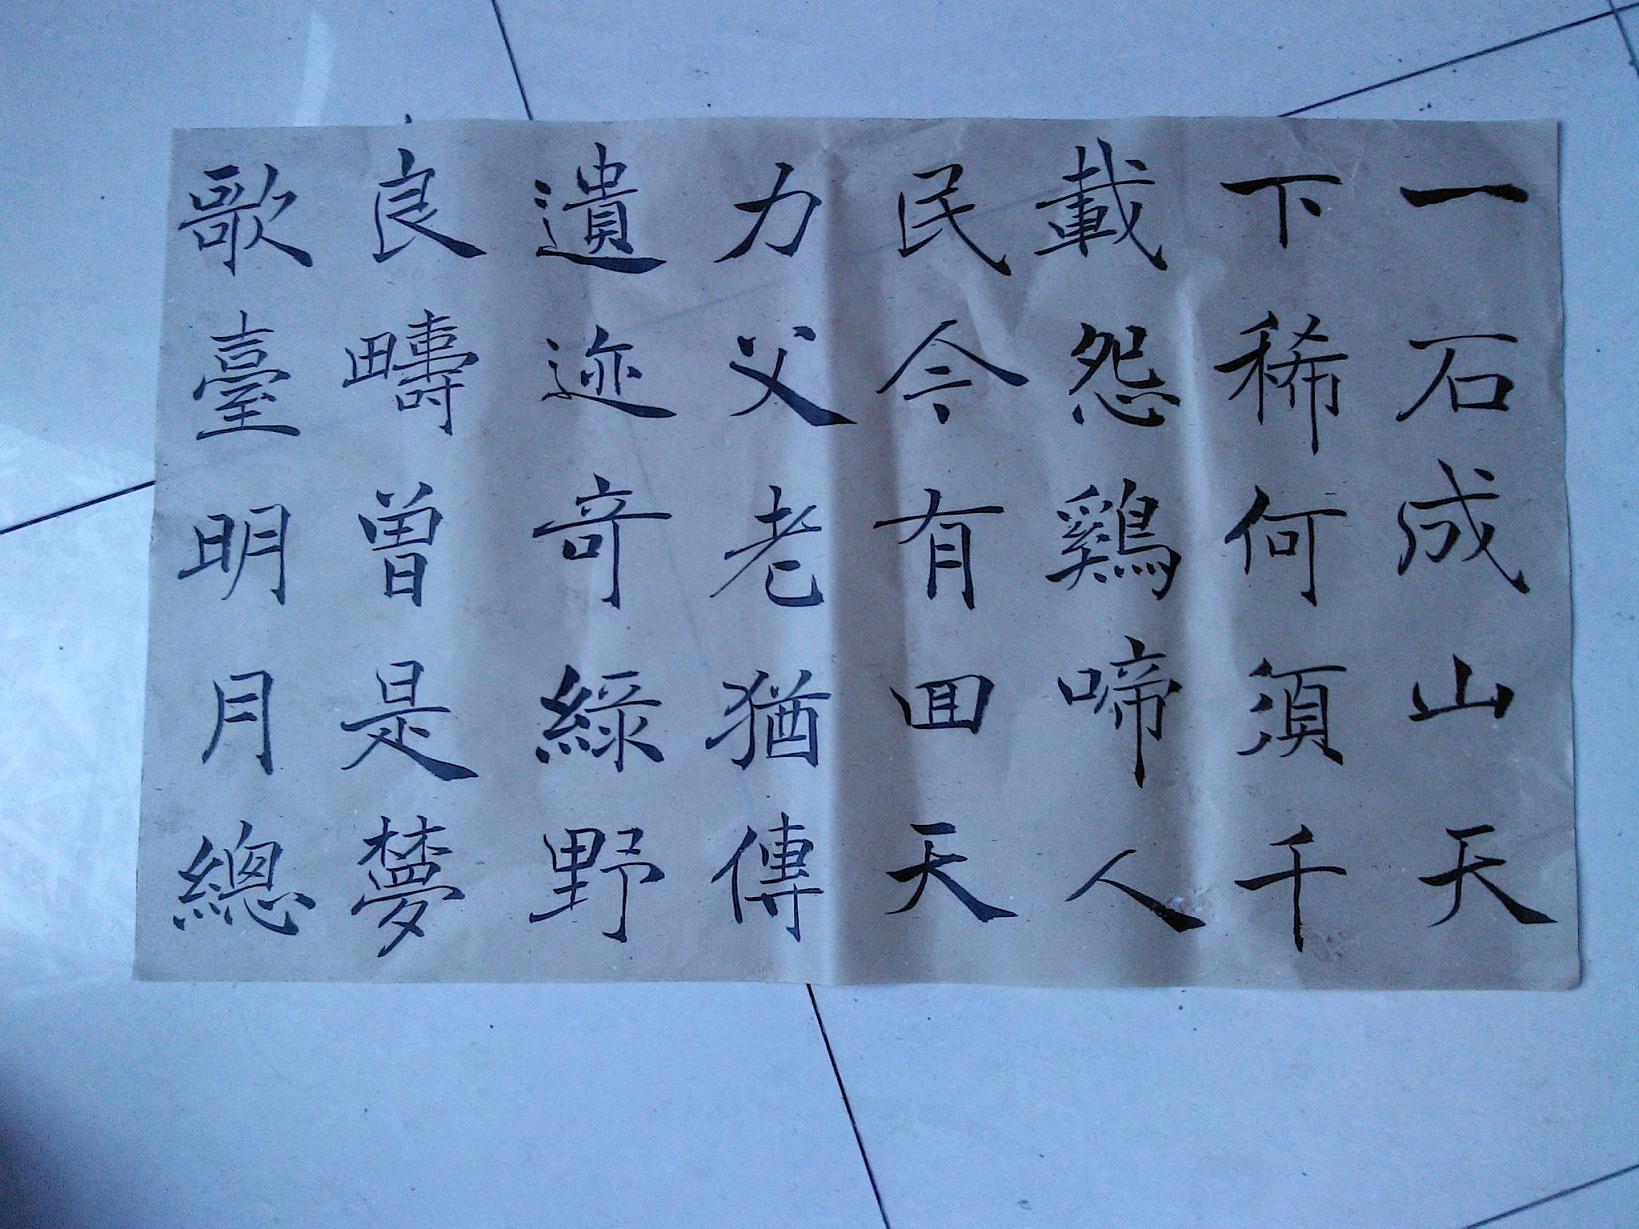 一石成山天
下稀何須千
載怨鷄啼人
民今有囬天
力父老猶傳
遺迹奇綠野
良疇曾是夢
歌臺明月總